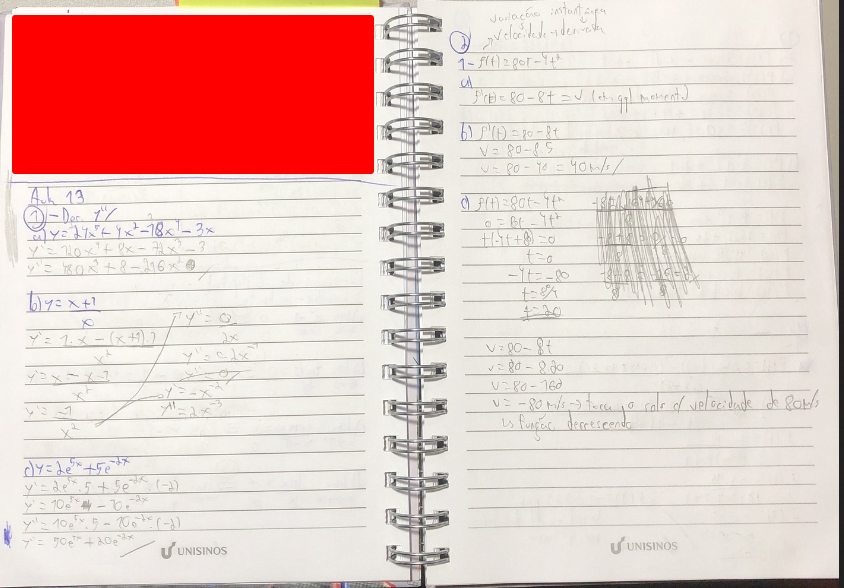 Aula 13
1) - Der. 2ª
a) y = 24x⁵ + 4x² - 18x⁴ - 3x
y' = 120x⁴ + 8x - 72x³ - 3
y'' = 480x³ + 8 - 216x²
b) y = x+1
x
y' = 1.x - (x+1).1
x²
y' = x - x - 1
x²
y' = -1
x²
y'' = 0
2x
y'' = 0
y' = -x⁻²
y'' = 2x⁻³
c) y = 2e⁵ˣ + 5e⁻²ˣ
y' = 2e⁵ˣ.5 + 5e⁻²ˣ.(-2)
y' = 10e⁵ˣ - 10e⁻²ˣ
y'' = 10e⁵ˣ.5 - 10e⁻²ˣ.(-2)
y'' = 50e⁵ˣ + 20e⁻²ˣ
UNISINOS
variação instantânea
2) velocidade → derivada
1- f(t) = 80t - 4t²
a)
f'(t) = 80 - 8t = v (em qql momento)
b) f'(t) = 80 - 8t
v = 80 - 8.5
v = 80 - 40 = 40 m/s
c) f(t) = 80t - 4t²
0 = 80t - 4t²
t(-4t + 80) = 0
t = 0
-4t = -80
t = 80/4
t = 20
v = 80 - 8t
v = 80 - 8.20
v = 80 - 160
v = -80 m/s → toca o solo c/ velocidade de 80 m/s
↳ função decrescendo
UNISINOS